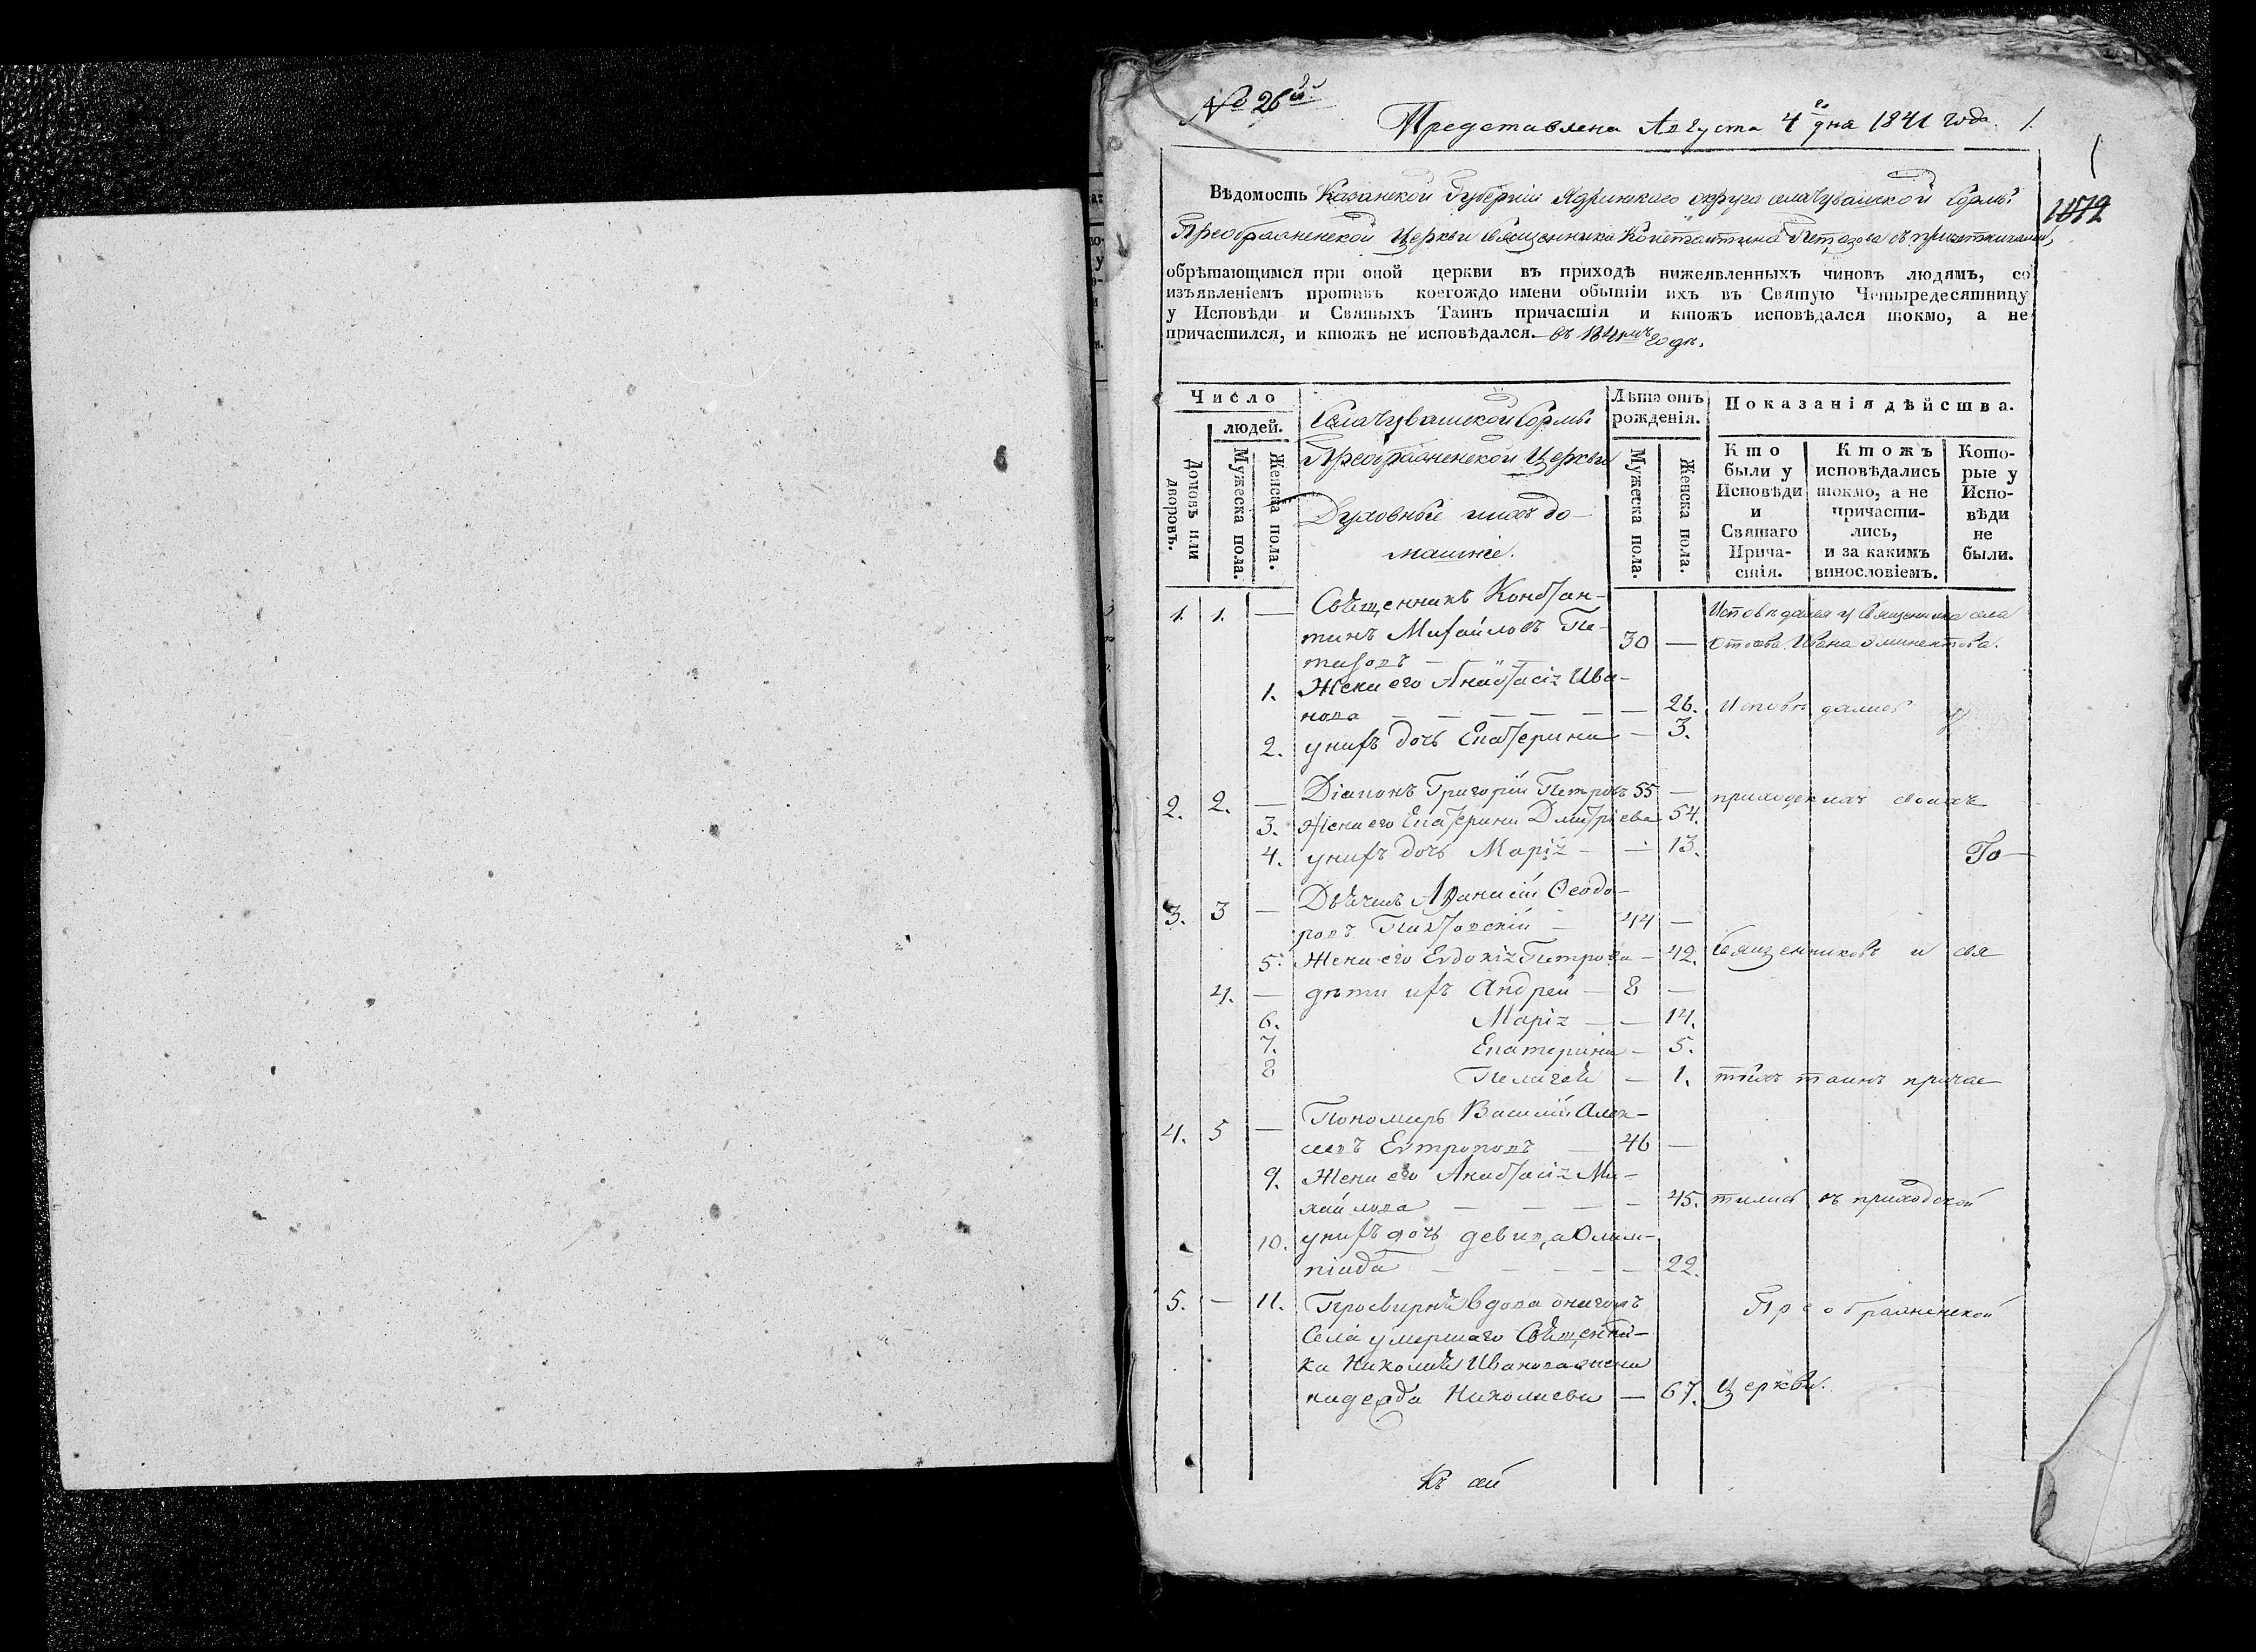 № 26й
Представлена Августа 4го дня 1841 года. 1.
1
1072
Вѣдомость Казанской Губерніи Ядринскаго округа села Чувашской Сормы
Преображенской Церкви Священника Константина с причетниками,
обрѣтающимся при оной церкви въ приходѣ нижеявленныхъ чиновъ людямъ, со
изъявленіемъ противъ коегождо имени обытіи ихъ въ Святую Четыредесятницу
у Исповѣди и Святыхъ Таинъ причастія и ктожъ исповѣдался токмо, а не
причастился, и ктожъ не исповѣдался. въ 1841мъ годѣ.
Число
людей.
Домовъ или дворовъ.
Мужеска пола.
Женска пола.
Села Чувашской Сормы
Преображенской Церкви
Духовные и ихъ до-
машніе.
Лѣта отъ рожденія.
Мужеска пола.
Женска пола.
Показанія дѣйства.
Кто были у Исповѣди и Святаго Прича- стія.
Ктожъ исповѣдались токмо, а не причасти- лись, и за какимъ винословіемъ.
Кото- рые у Испо- вѣди не были.
1. 1. — Священникъ Констан- Исповѣдался у Священника села
тинъ Михайловъ Пе- 30 — Ивана
1. Жена его Анастасія Ива-
нова — 26. Исповѣдались у
2. у нихъ дочь Екатерина — 3.
2. 2. — Діаконъ Григорій Петровъ 55 — приходскихъ своихъ
3. Жена его Екатерина Дмитріева 54.
4. у нихъ дочь Марія — 13. Го-
3. 3 — Дьячекъ Аѳанасій Ѳеодо-
ровъ 44 —
5. Жена его Евдокія Петрова — 42. Священниковъ и свя
4. — дѣти ихъ Андрей — 8 —
6. Марія — 14.
7. Екатерина — 5.
8 Пелагея — 1. тыхъ таинъ причас
4. 5 — Пономарь Василій Алек-
сеевъ Евтроповъ 46 —
9. Жена его Анастасія Ми-
хайлова — 45. тились въ приходской
10. у нихъ дочь девица Олим-
піада — 22.
5. — 11. Просвирня вдова онагожъ Преображенской
Села умершаго Священни-
ка Николая Иванова жена
надежда Николаева — 67. Церкви.